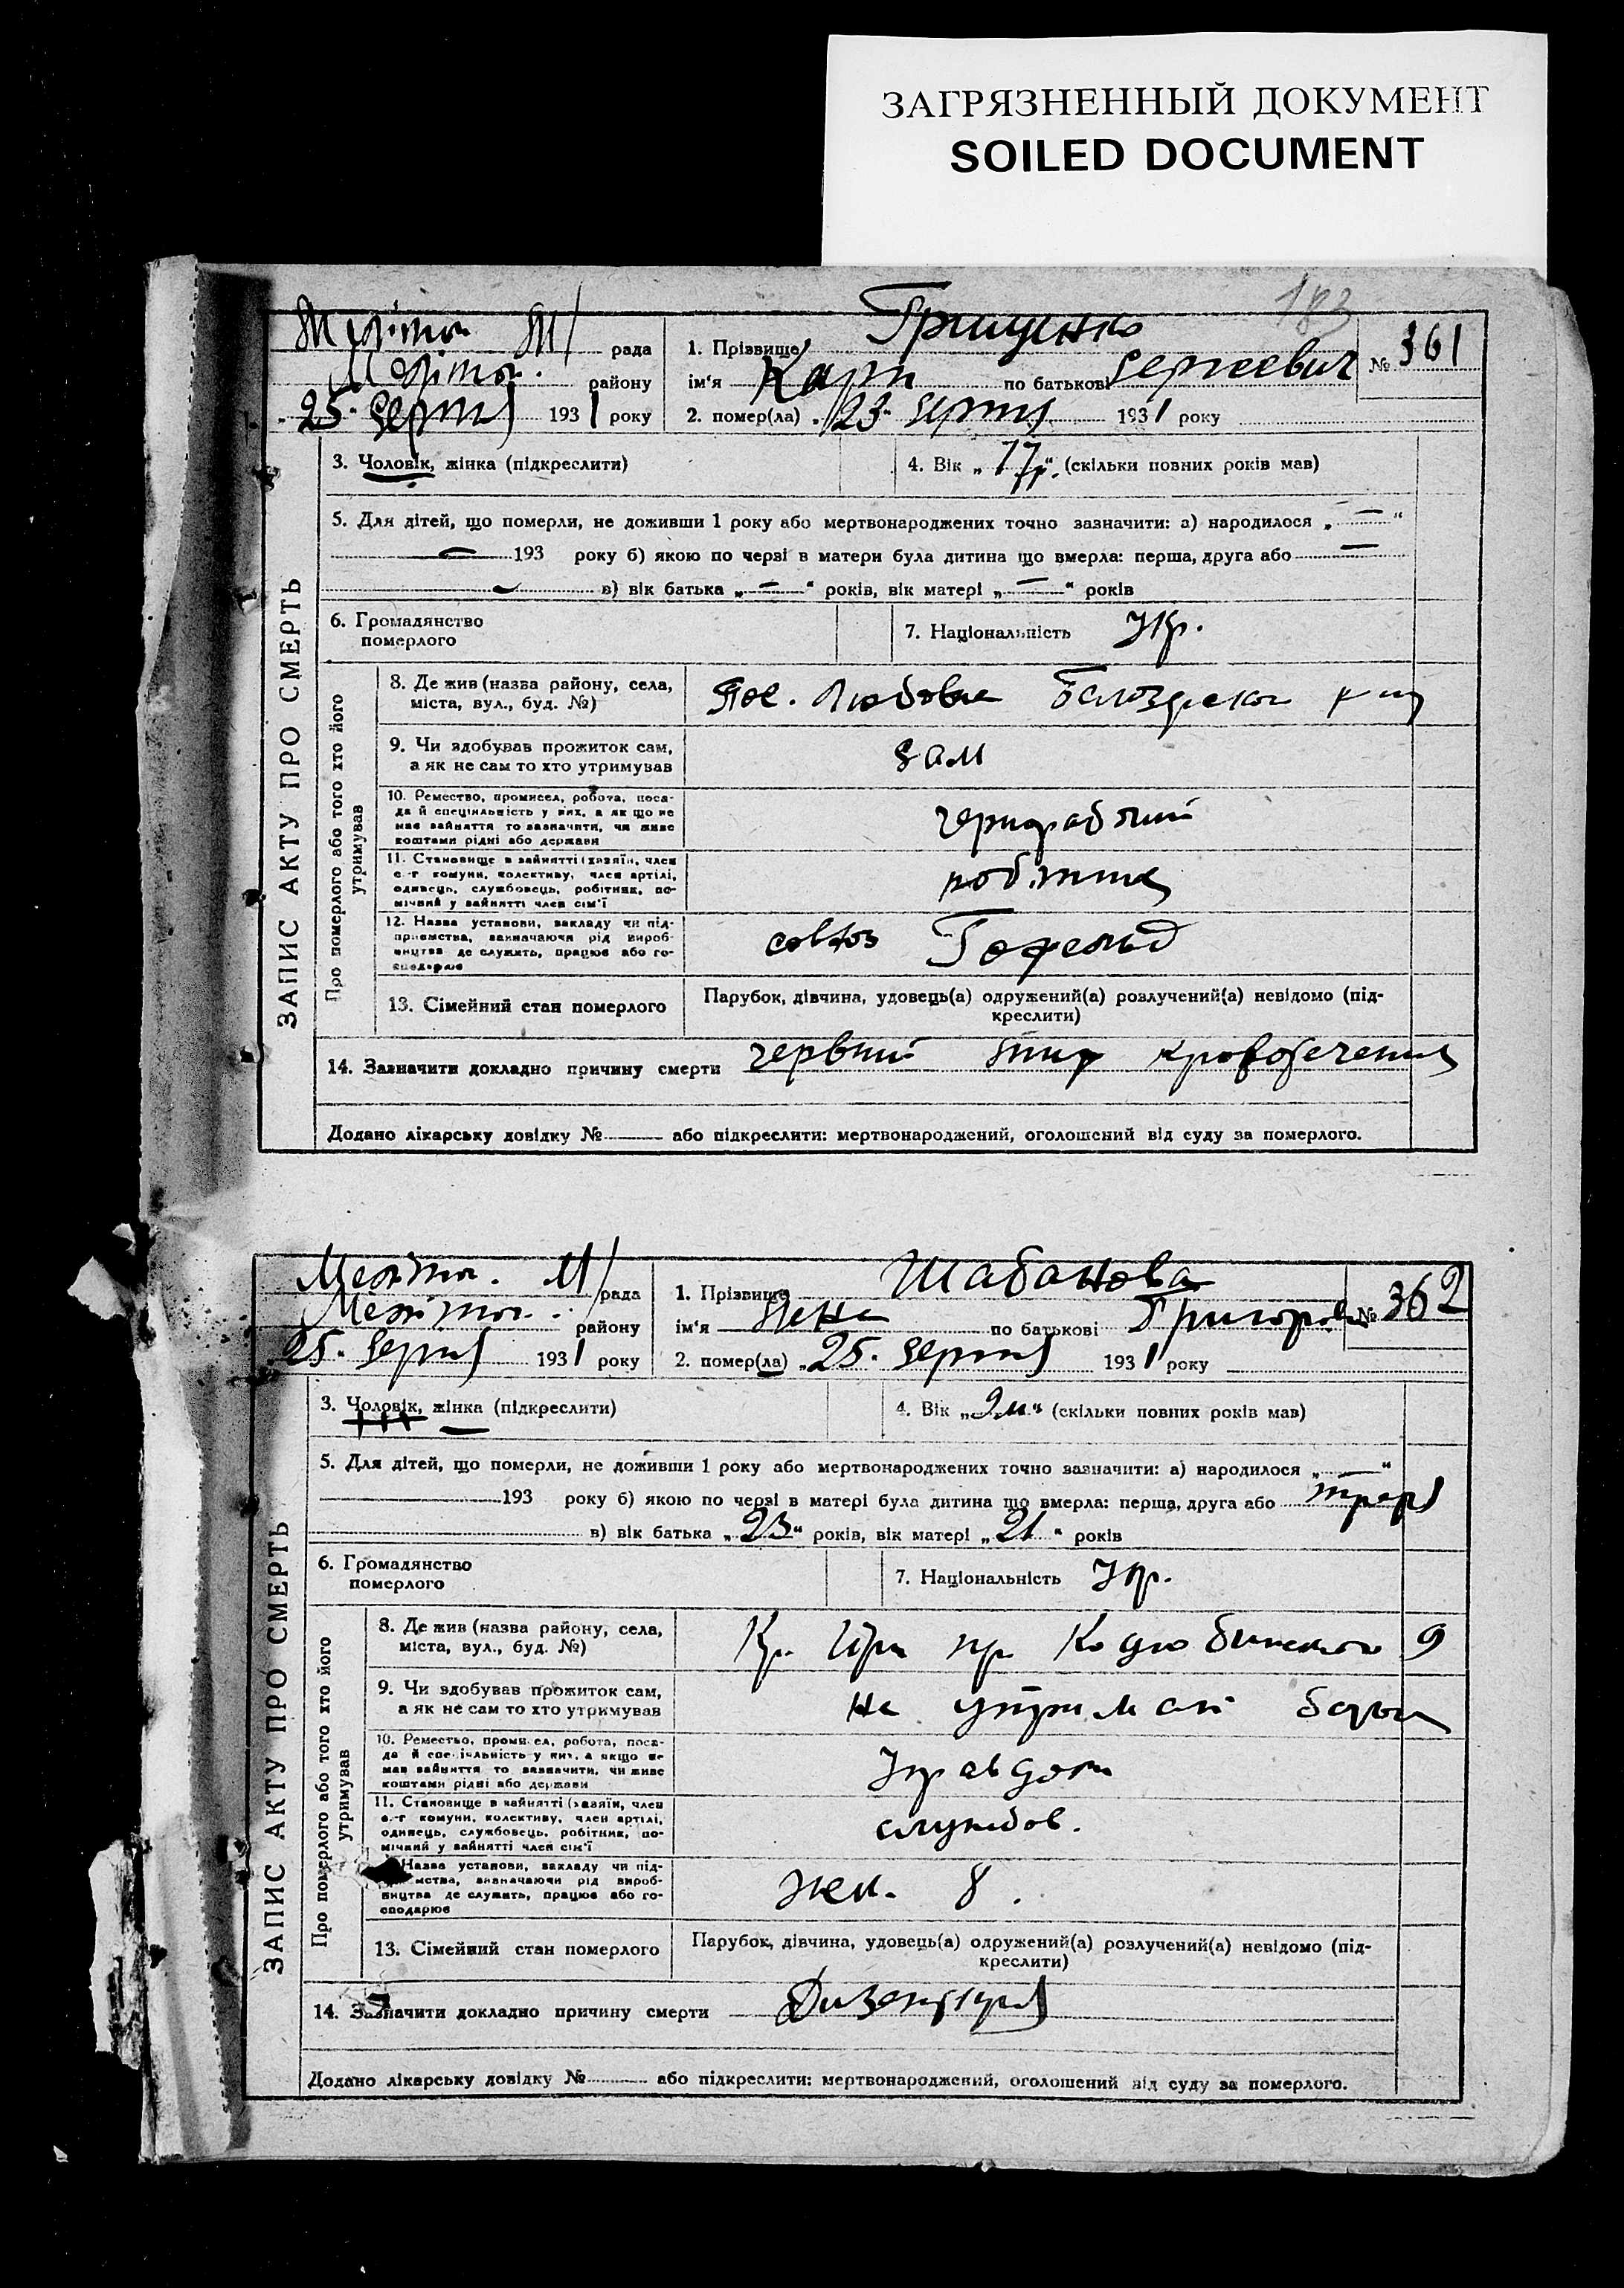 ЗАГРЯЗНЕННЫЙ ДОКУМЕНТ
SOILED DOCUMENT
183
ЗАПИС АКТУ ПРО СМЕРТЬ
Мелітоп. М/ рада
Мелітоп. району
25. Серпня 1931 року
1. Прізвище Грищенко
ім‘я Карп по батькові Сергеевич
№ 361
2. помер(ла) „23. Серпня 1931 року
3. Чоловік, жінка (підкреслити)
4. Вік „77р.“ (скільки повних років мав)
5. Для дітей, що померли, не доживши 1 року або мертвонароджених точно зазначити: а) народилося „—“
— 193 року б) якою по черзі в матери була дитина що вмерла: перша, друга або —
— в) вік батька „—“ років, вік матері „—“ років
6. Громадянство
померлого
7. Національність Укр.
Про померлого або того хто його
утримував
8. Де жив (назва району, села,
міста, вул., буд. №)
Пос.
9. Чи здобував прожиток сам,
а як не сам то хто утримував
Сам
10. Ремество, промисел, робота, поса-
да й спеціяльність у них, а як що не
мав зайняття то зазначити, чи живе
коштами рідні або держави
чернорабочий
11. Становище в зайнятті (хазяїн, член
с.-г комуни, колективу, член артілі,
одинець, службовець, робітник, по-
мічний у зайнятті член сім'ї
робітник
12. Назва установи, закладу чи під-
приємства, зазначаючи рід вироб-
ництва де служить, працює або го-
сподарює
совхоз
13. Сімейний стан померлого
Парубок, дівчина, удовець(а) одружений(а) розлучений(а) невідомо (під-
креслити)
14. Зазначити докладно причину смерти
Додано лікарську довідку № або підкреслити: мертвонароджений, оголошений від суду за померлого.
ЗАПИС АКТУ ПРО СМЕРТЬ
Мелітоп. М/ рада
Мелітоп. району
25. Серпня 1931 року
1. Прізвище Шабанова
ім‘я по батькові Григоров
№ 362
2. помер(ла) „25. Серпня 1931 року
3. Чоловік, жінка (підкреслити)
4. Вік „9м“ (скільки повних років мав)
5. Для дітей, що померли, не доживши 1 року або мертвонароджених точно зазначити: а) народилося „—“
193 року б) якою по черзі в матері була дитина що вмерла: перша, друга або
в) вік батька „23“ років, вік матері „21“ років
6. Громадянство
померлого
7. Національність Укр.
Про померлого або того хто його
утримував
8. Де жив (назва району, села,
міста, вул., буд. №)
Кр. 9
9. Чи здобував прожиток сам,
а як не сам то хто утримував
на утриман батьк
10. Ремество, промисел, робота, поса-
да й спеціяльність у них, а якщо не
мав зайняття то зазначити, чи живе
коштами рідні або держави
11. Становище в зайнятті (хазяїн, член
с.-г комуни, колективу, член артілі,
одинець, службовець, робітник, по-
мічний у зайнятті член сім'ї
службов.
Назва установи, закладу чи під-
ємства, зазначаючи рід вироб-
ництва де служить, працює або го-
сподарює
8
13. Сімейний стан померлого
Парубок, дівчина, удовець(а) одружений(а) розлучений(а) невідомо (під-
креслити)
14. Зазначити докладно причину смерти Дизентерия
Додано лікарську довідку № або підкреслити: мертвонароджений, оголошений від суду за померлого.